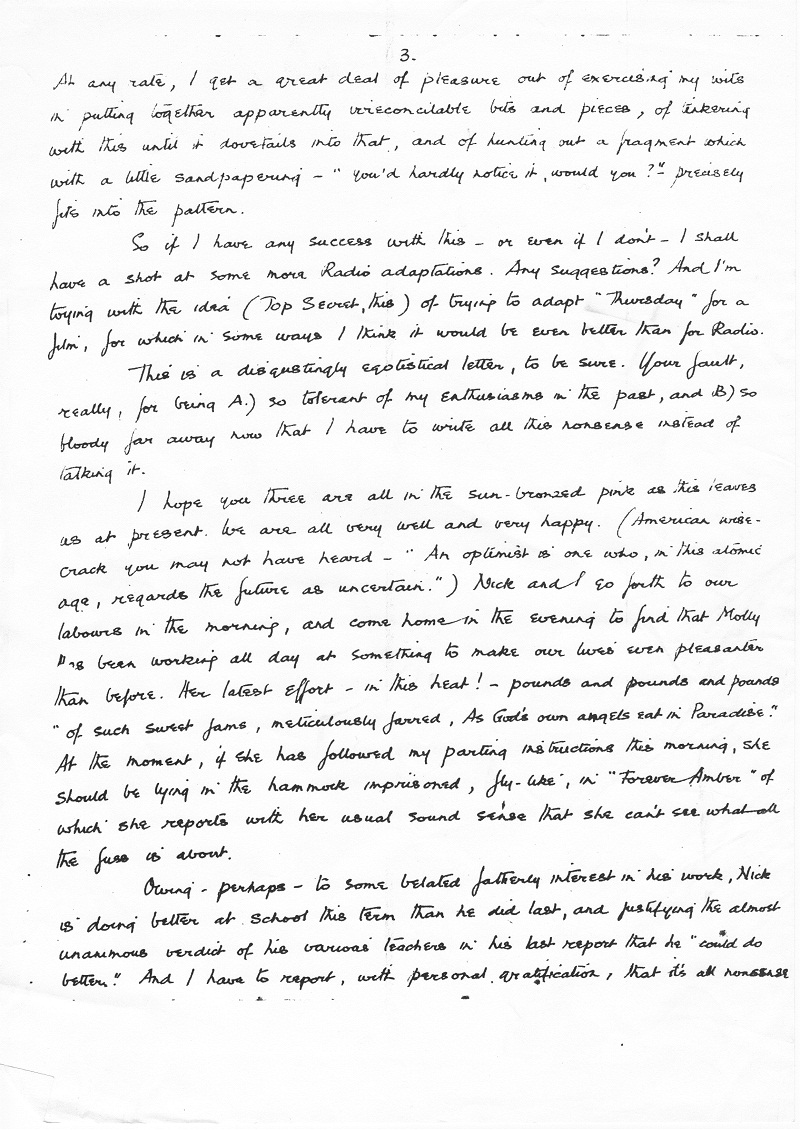 3.
At any rate, I get a great deal of pleasure out of exercising my wits
in putting together apparently irreconcilable bits and pieces, of tinkering
with this until it dovetails into that, and of hunting out a fragment which
with a little sandpapering - "you'd hardly notice it, would you?" - precisely
fits into the pattern.
So if I have any success with this - or even if I don't - I shall
have a shot at some more Radio adaptations. Any suggestions? And I'm
toying with the idea (Top Secret, this) of trying to adapt "Thursday" for a
film, for which in some ways I think it would be even better than for Radio.
This is a disgustingly egotistical letter, to be sure. Your fault,
really, for being A.) so tolerant of my enthusiasms in the past, and B) so
bloody far away now that I have to write all this nonsense instead of
talking it.
I hope you three are all in the sun-bronzed pink as this leaves
us at present. We are all very well and very happy. (American wise-
crack you may not have heard - "An optimist is one who, in this atomic
age, regards the future as uncertain.") Nick and I go forth to our
labours in the morning, and come home in the evening to find that Molly
has been working all day at something to make our lives even pleasanter
than before. Her latest effort - in this heat! - pounds and pounds and pounds
"of such sweet jams, meticulously jarred, As God's own angels eat in Paradise."
At the moment, if she has followed my parting instructions this morning, she
should be lying in the hammock imprisoned, fly-like, in "Forever Amber" of
which she reports with her usual sound sense that she can't see what all
the fuss is about.
Owing - perhaps - to some belated fatherly interest in his work, Nick
is doing better at school this term than he did last, and justifying the almost
unanimous verdict of his various teachers in his last report that he "could do
better." And I have to report, with personal gratification, that it's all nonsense